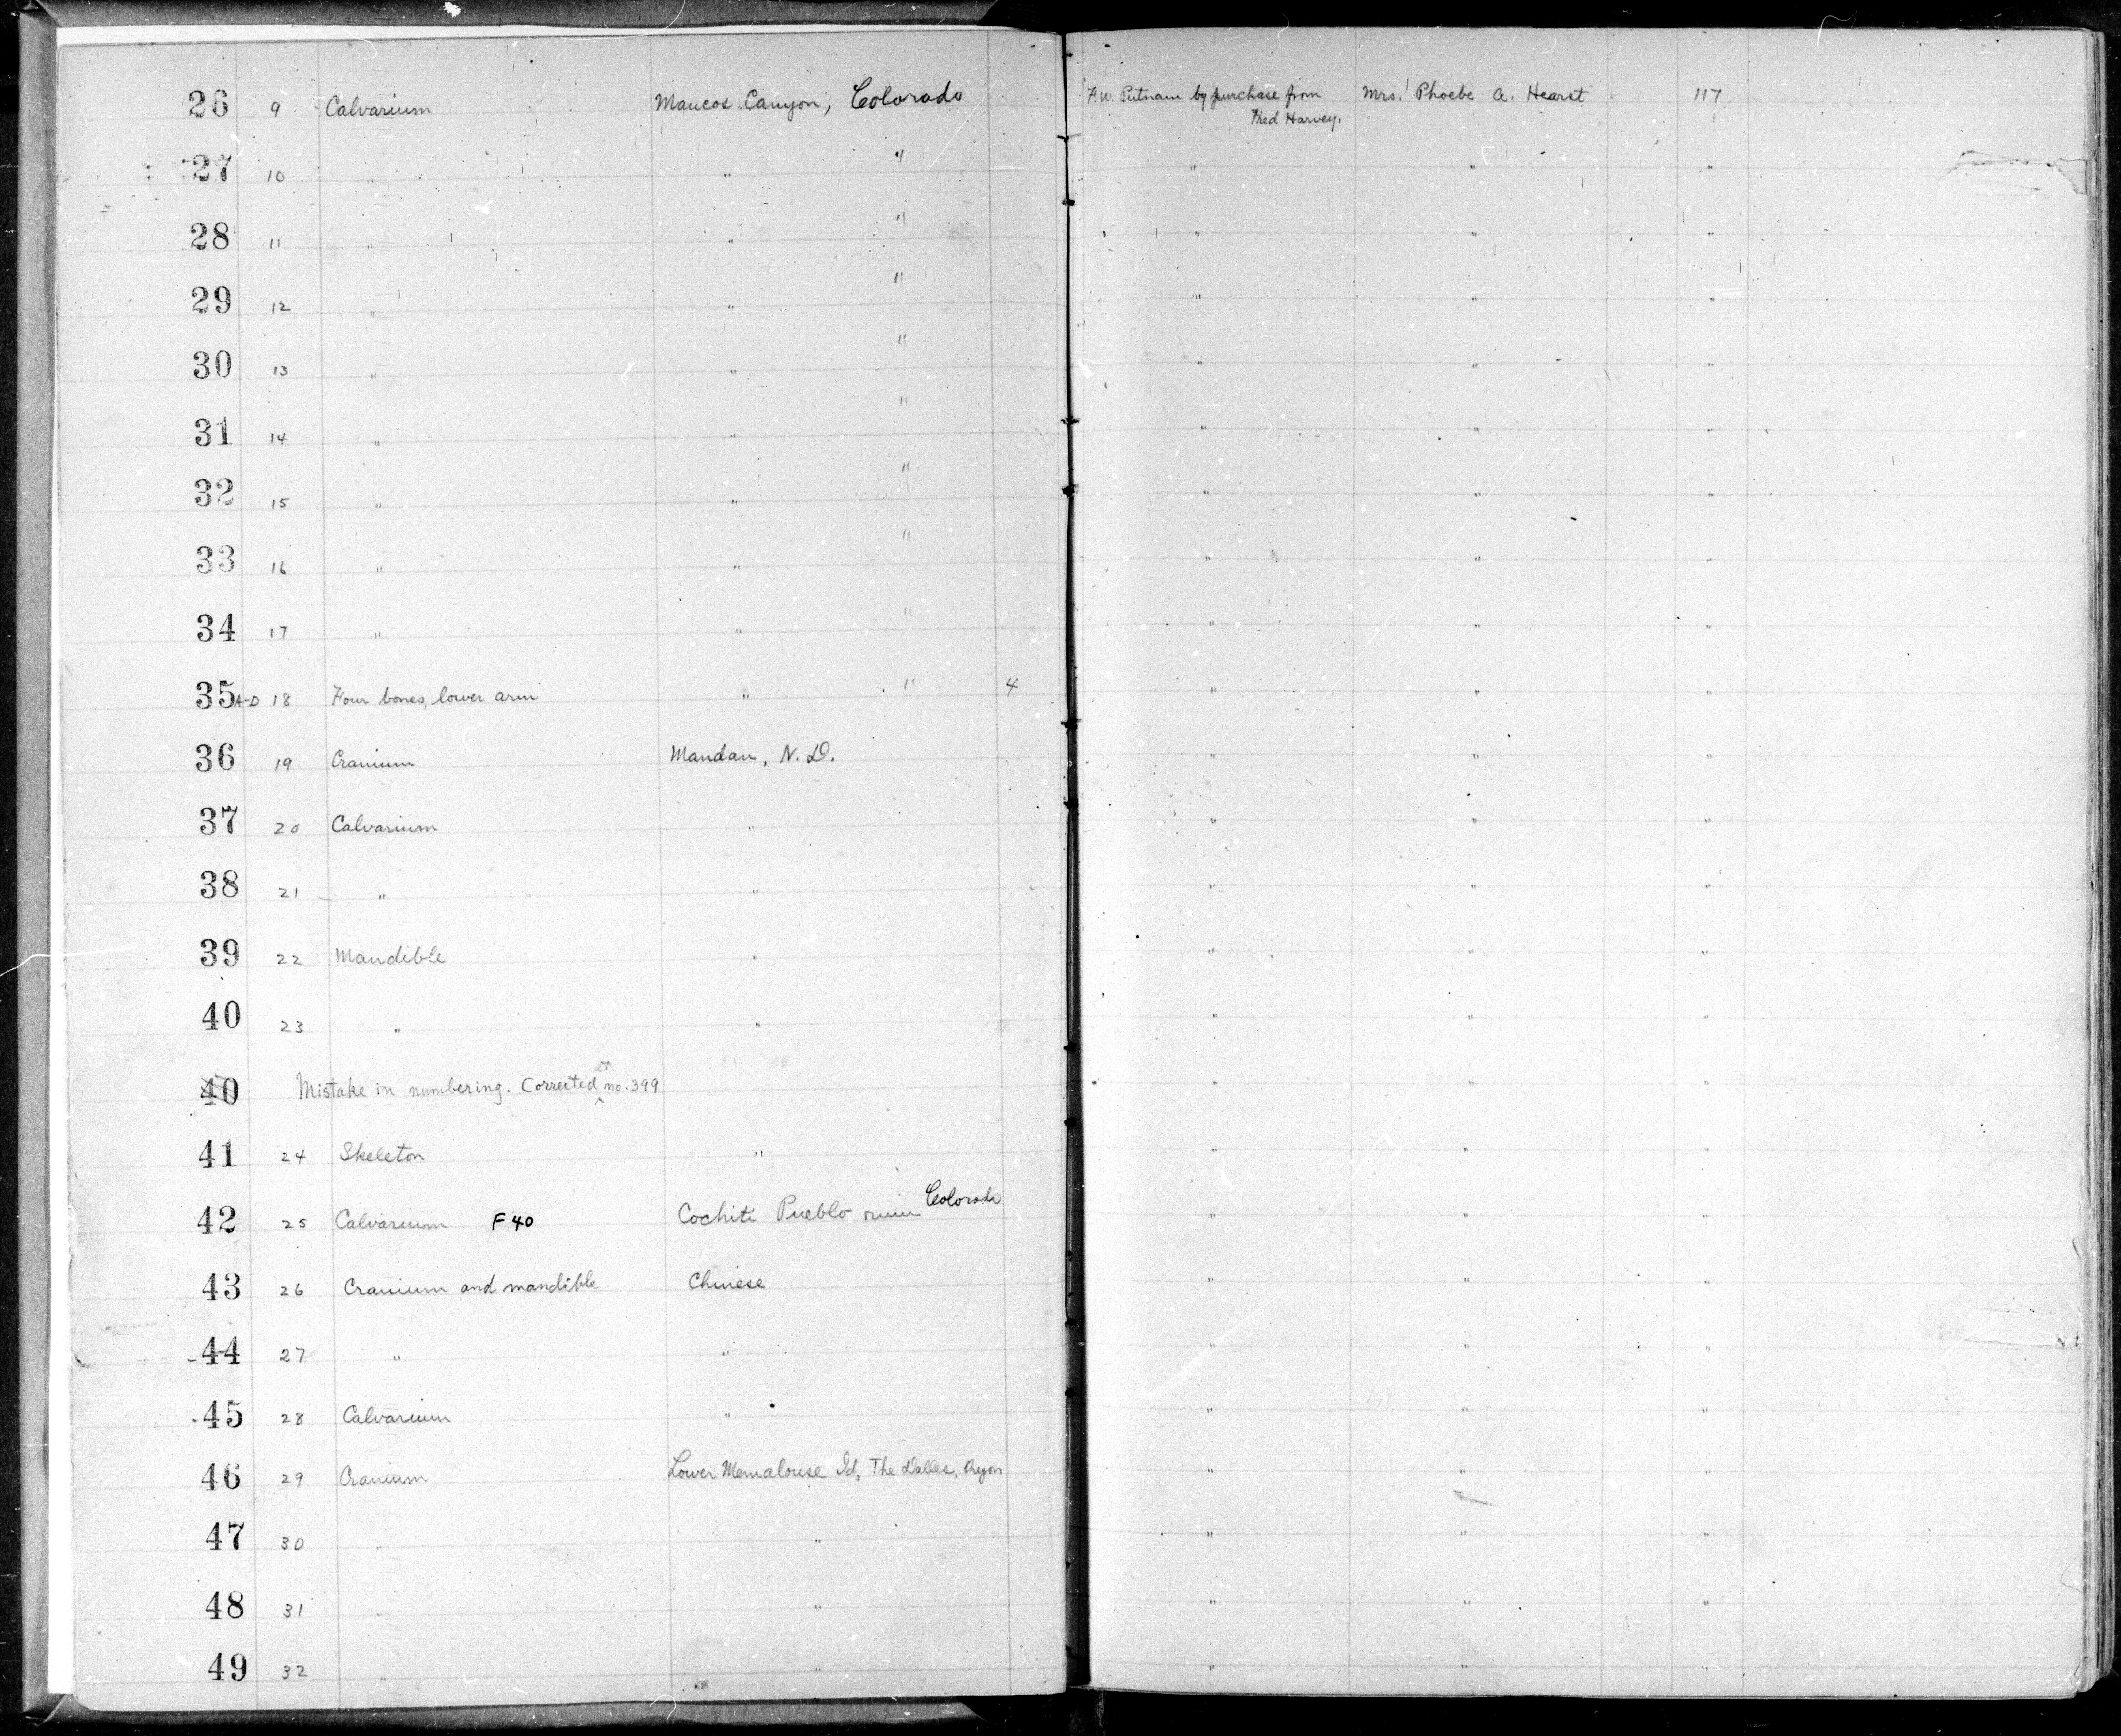 26 9 Calvarium Mancos Canyon, Colorado F.W. Putnam by purchase from Mrs. Phoebe A. Hearst 117
Fred Harvey.
27 10 " " " " " "
28 11 " " " " " "
29 12 " " " " " "
30 13 " " " " " "
31 14 " " " " " "
32 15 " " " " " "
33 16 " " " " " "
34 17 " " " " " "
35 A-D 18 Four bones, lower arm " " 4 " " "
36 19 Cranium Mandan, N.D. " " "
37 20 Calvarium " " " "
38 21 " " " " "
39 22 Mandible " " " "
40 23 " " " " "
40 Mistake in numbering. Corrected at no. 399 " " "
41 24 Skeleton " " " "
42 25 Calvarium F40 Cochiti Pueblo ruin Colorado " " "
43 26 Cranium and mandible Chinese " " "
44 27 " " " " "
45 28 Calvarium " " " "
46 29 Cranium Lower Memalouse Id, The Dalles, Oregon " " "
47 30 " " " " "
48 31 " " " " "
49 32 " " " " "